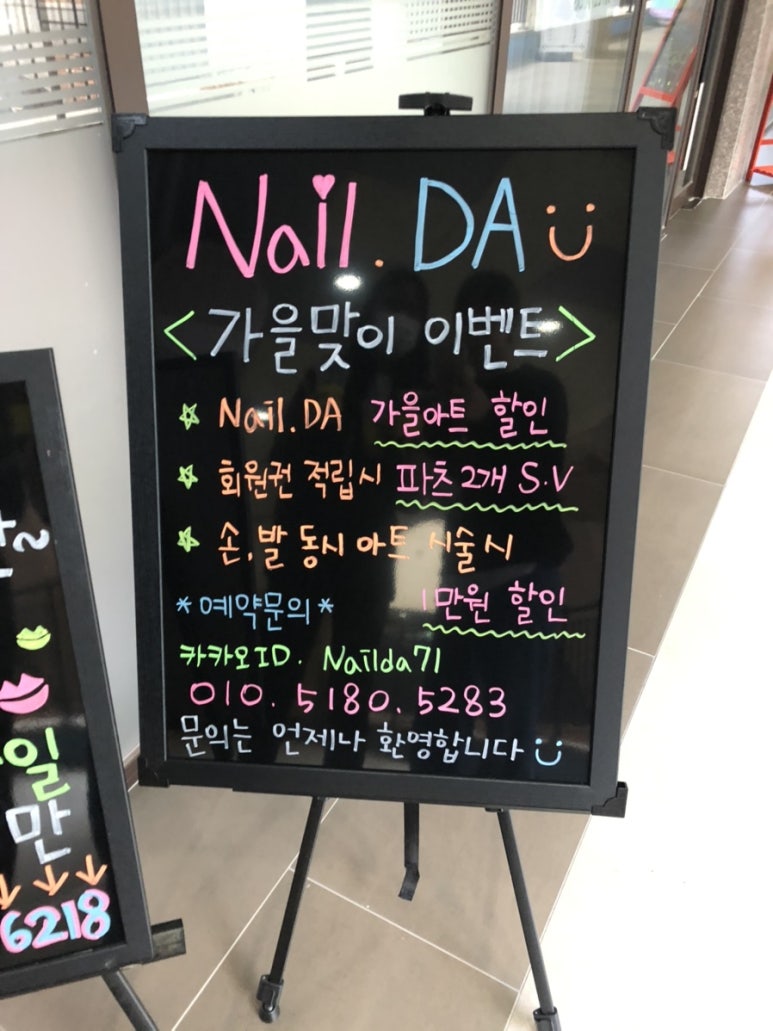 Nail. DA
<가을맞이 이벤트>
Nail.DA 가을아트 할인
회원권 적립시 파츠2개 S.V
손.발 동시 아트 시술시
1만원 할인
*예약문의*
카카오ID. Nailda71
010. 5180. 5283
문의는 언제나 환영합니다
일
만
6218